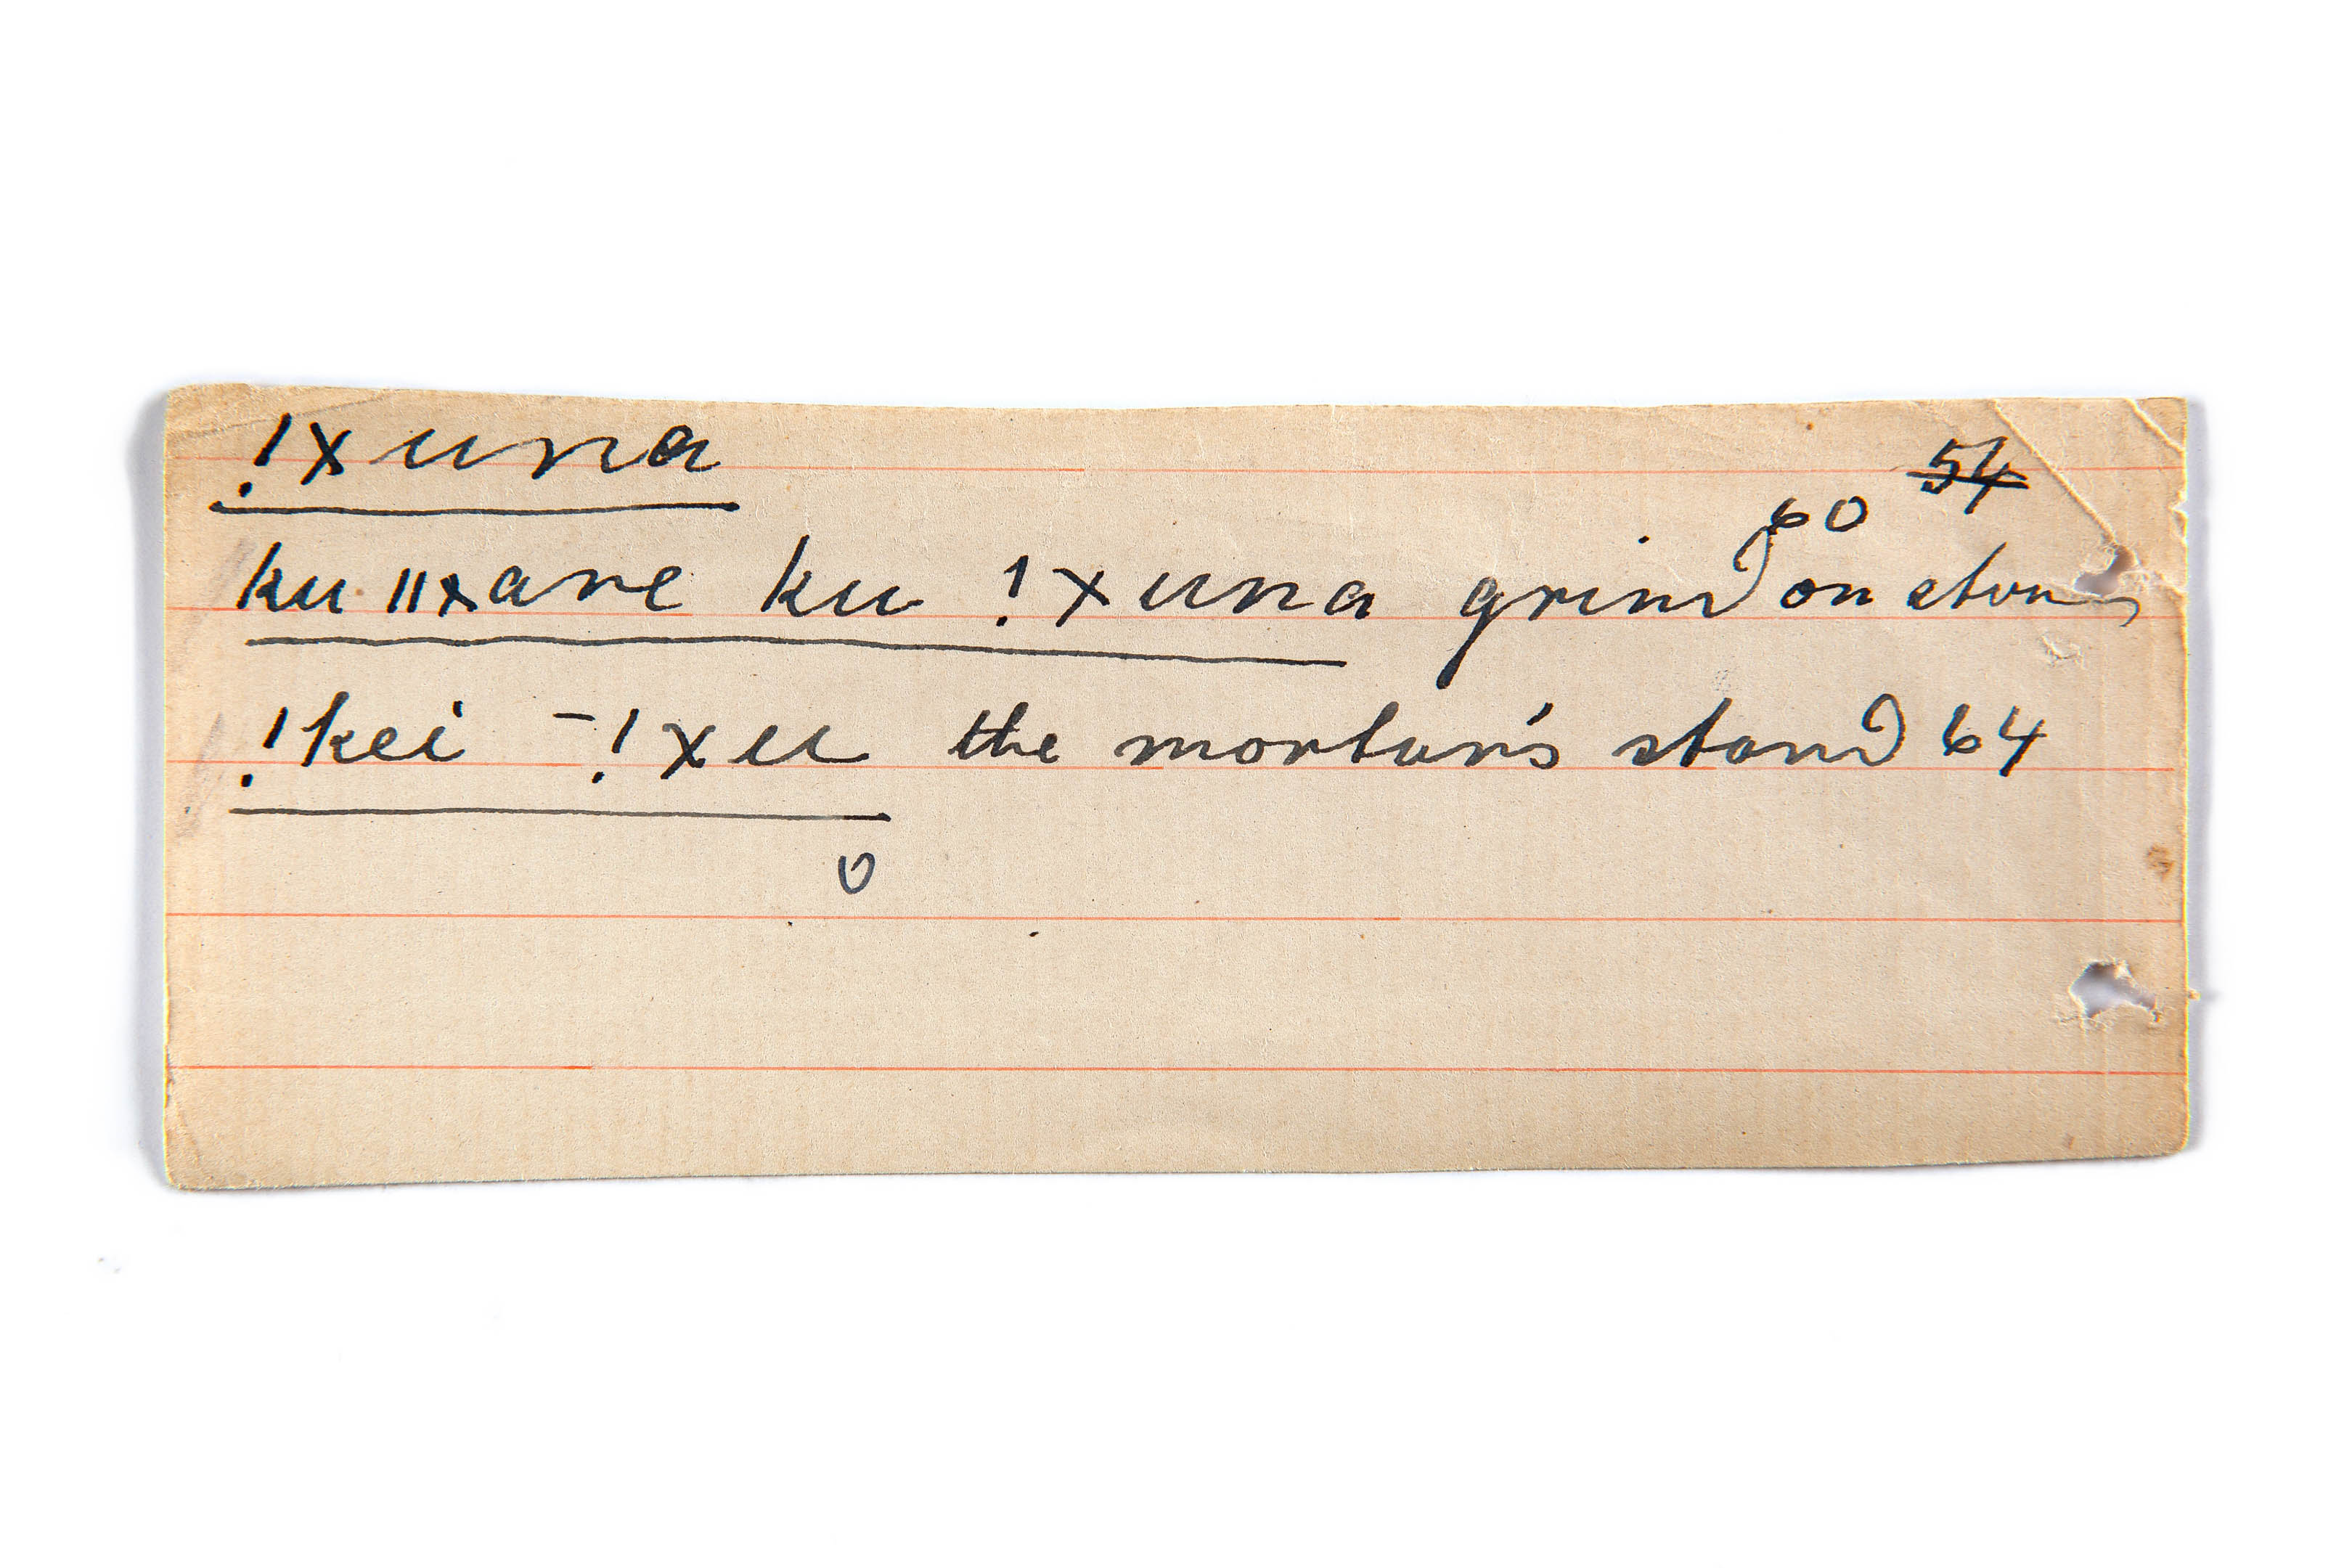 !xuna
54
60
ku ǁxare ku !xuna grind on stones
!kei -!xu the mortar's stand 64